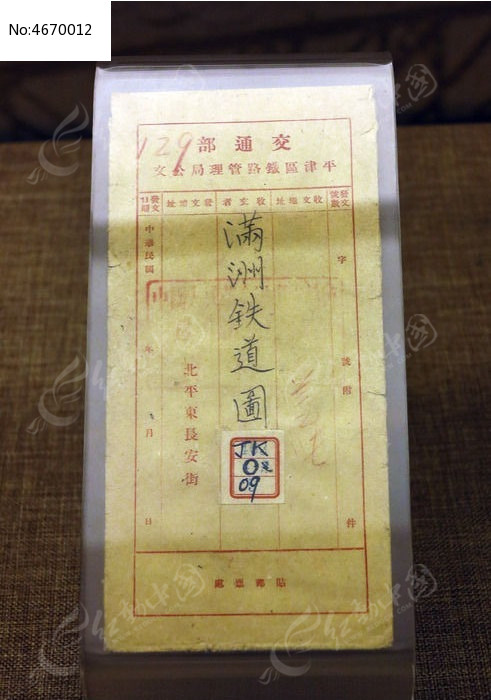 No:4670012
129
交通部
平津區鐵路管理局公文
發文號數
收文地址
收文者
發文地址
發文日期
字
號附
件
滿洲鉄道圖
JK
09
北平東長安街
中華民國
年
月
日
貼郵票處